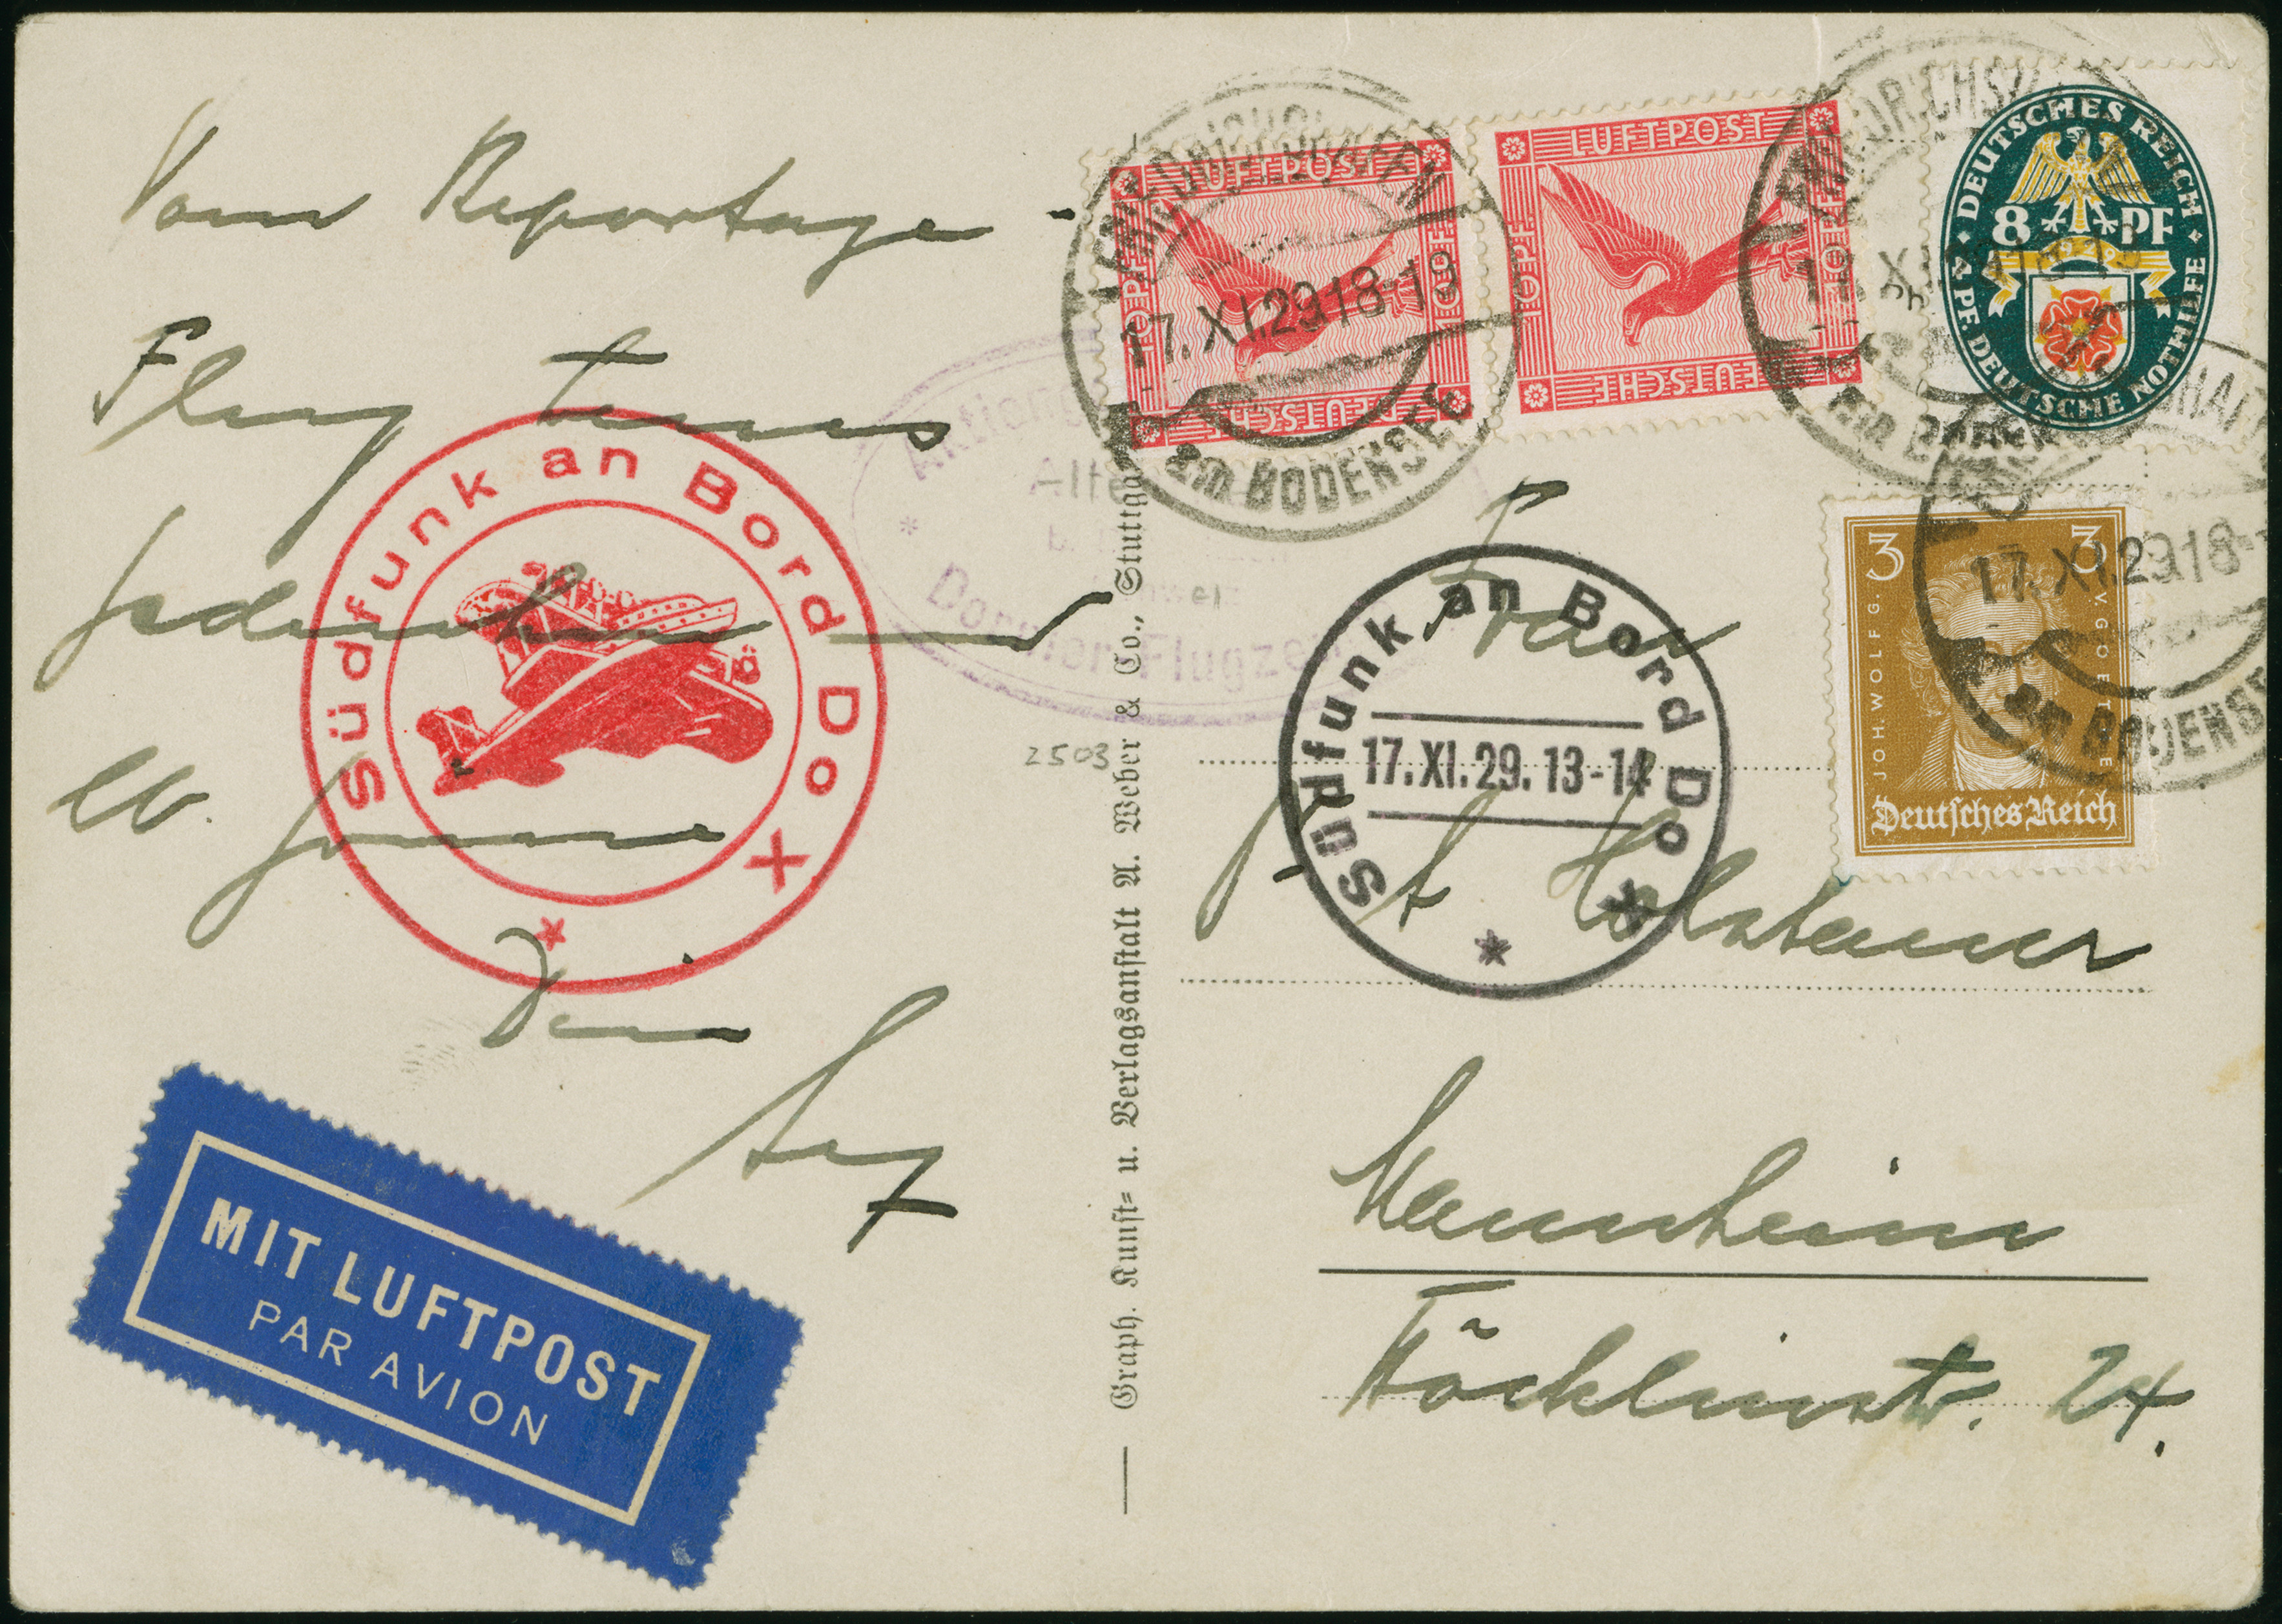 Vom Reportage-
Flug
Dein
Südfunk an Bord Do X
MIT LUFTPOST
PAR AVION
Graph. Kunst- u. Verlagsanstalt A. Weber & Co., Stuttgart
2503
Dornier Flugze
LUFTPOST
10 PF. 10 PF.
DEUTSCHE
LUFTPOST
10 PF. 10 PF.
DEUTSCHE
FRIEDRICHSHAFEN
17.XI.29.18-19
am BODENSEE
DEUTSCHES REICH
8 PF
1929
4 PF. DEUTSCHE NOTHILFE
3 3
JOH. WOLFG. V. GOETHE
Deutsches Reich
17.XI.29.18-
am BODENSEE
Südfunk an Bord Do X
17.XI.29.13-14
Frau
Holsteiner
Mannheim
24.